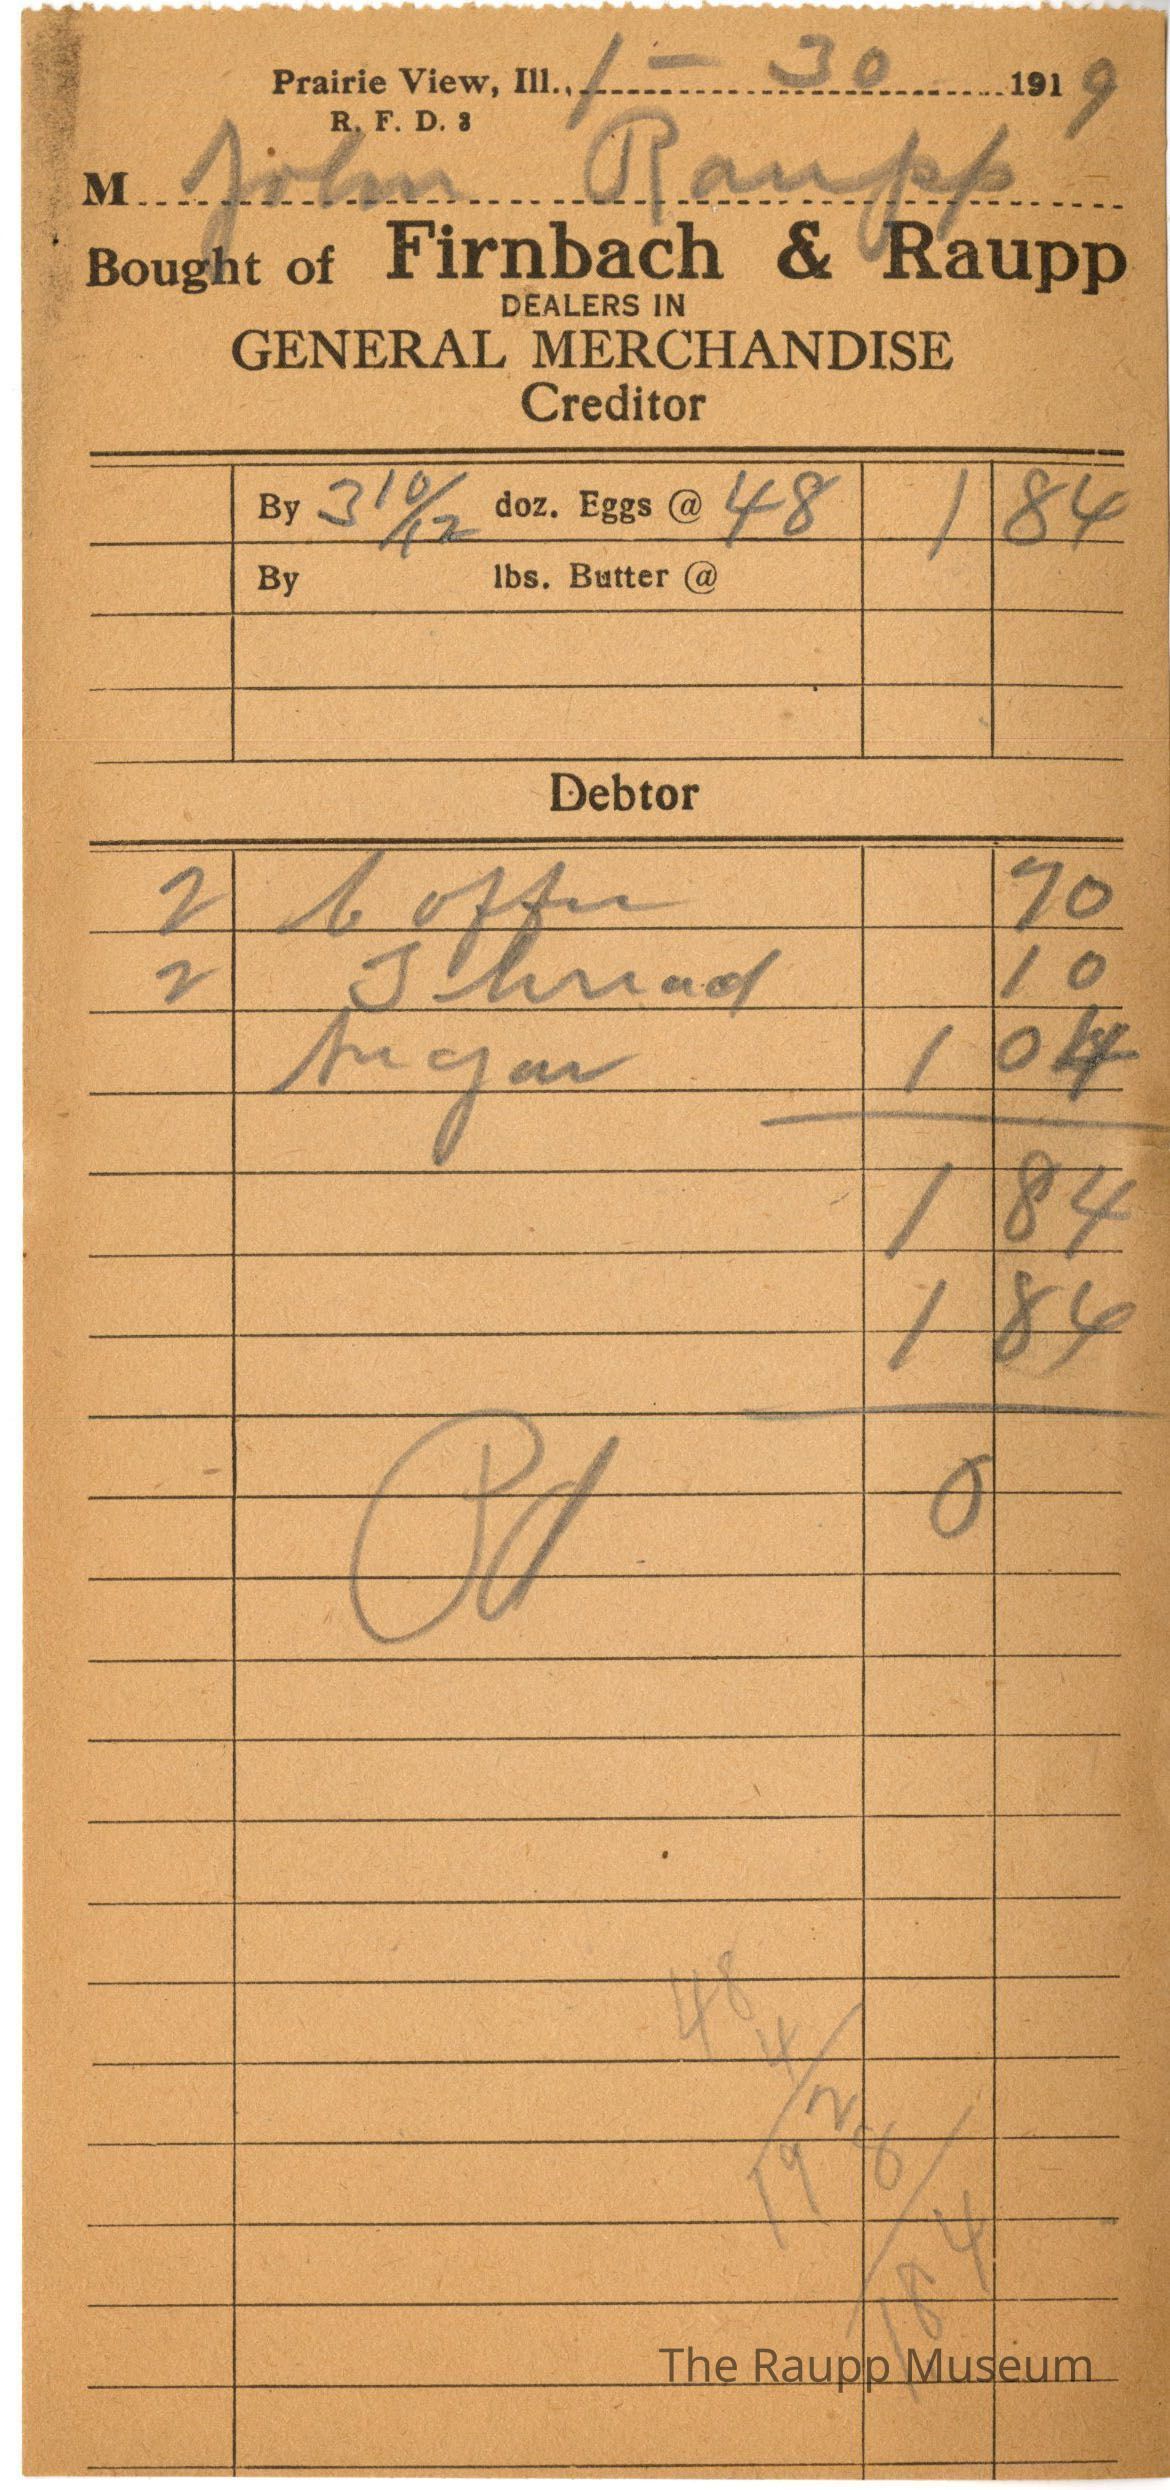 Prairie View, Ill., 1 - 30 1919
R. F. D. 3
M John Raupp
Bought of Firnbach & Raupp
DEALERS IN
GENERAL MERCHANDISE
Creditor
By 3 10/12 doz. Eggs @ 48 1 84
By lbs. Butter @
Debtor
2 Coffee 70
2 Thread 10
Sugar 1 04
1 84
1 84
Pd 0
48
4
192
8
184
The Raupp Museum